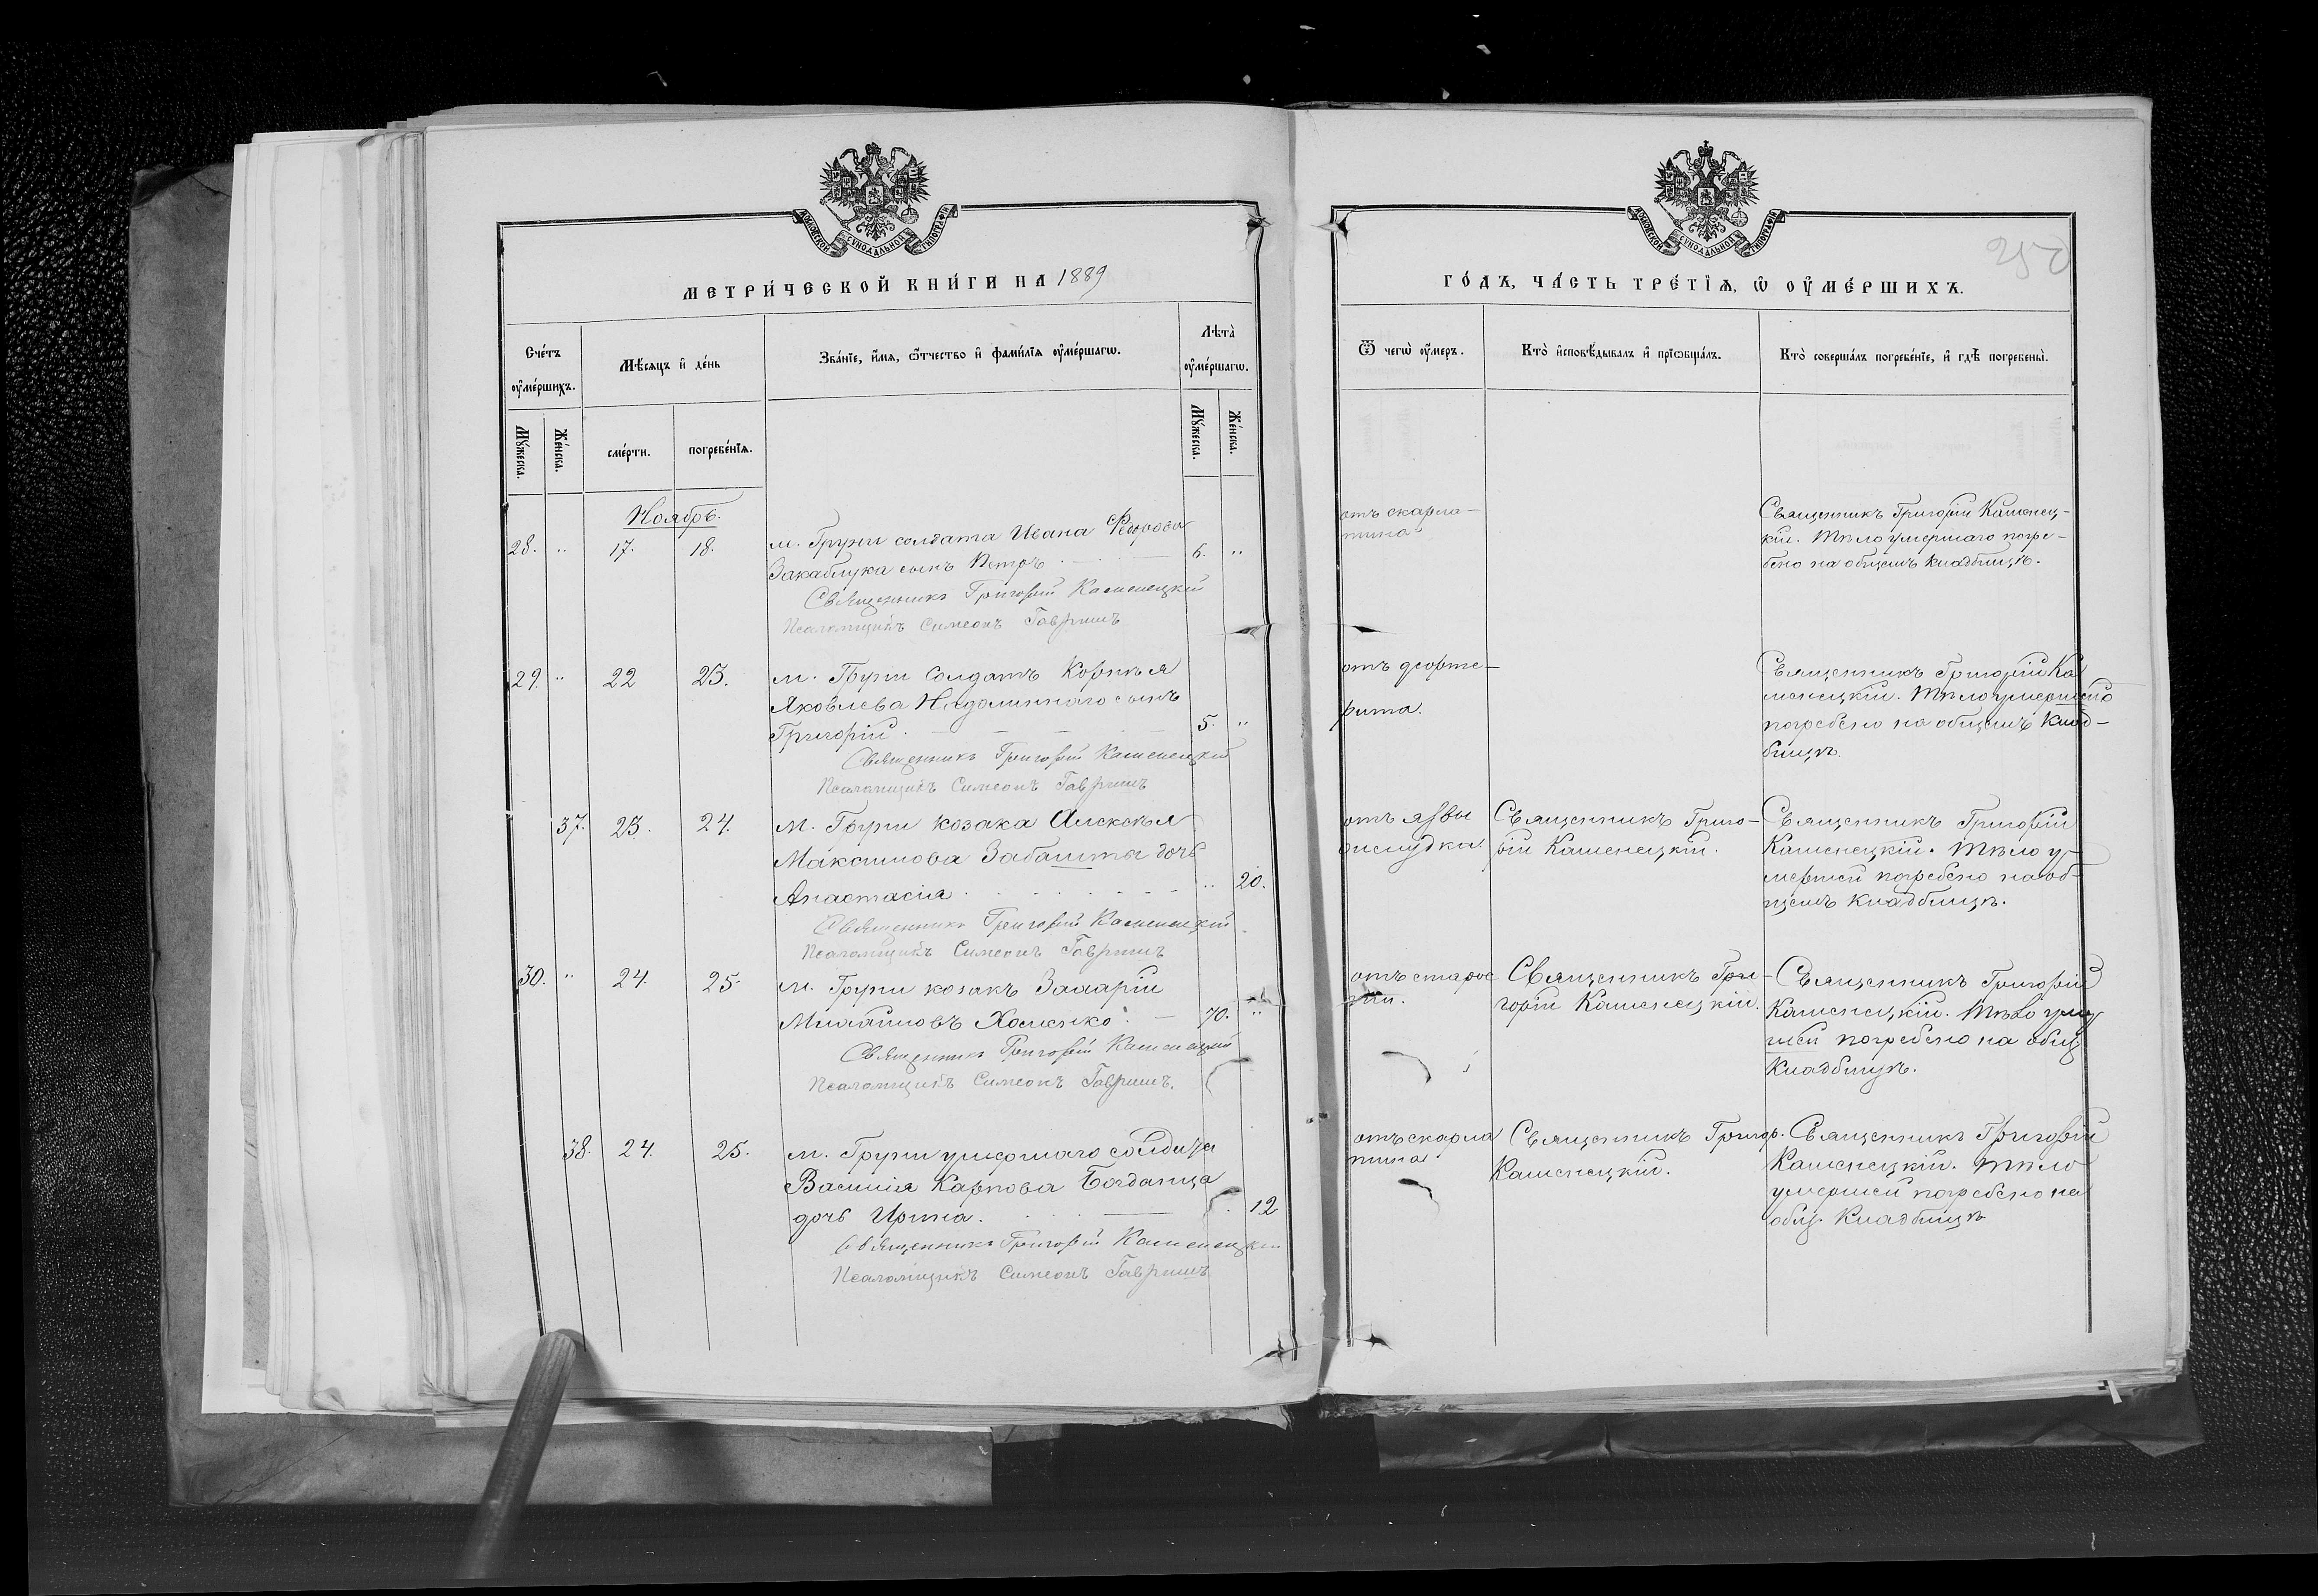 МОСКОВСКОЙ СѴНОДАЛЬНОЙ ТИПОГРАФІИ
МЕТРИ́ЧЕСКОЙ КНИ́ГИ НА 1889
Сче́тъ ᲂу҆ме́ршихъ.
Мѣ́сяцъ и҆ де́нь
Зва́нїе, и҆́мѧ, ѻ҆́тчество и҆ фами́лїѧ ᲂу҆ме́ршагѡ.
Лѣта̀ ᲂу҆ме́ршагѡ.
Мꙋ́жеска.
Же́нска.
сме́рти.
погребе́нїѧ.
Мꙋ́жеска.
Же́нска.
Ноябрь.
28. „ 17. 18. м. Груни солдата Ивана Федорова
Закаблука сынъ Петръ. 6. „
Священникъ Григорій Каменецкій
Псаломщикъ Симеонъ Гавришъ
29. „ 22 23. м. Груни Солдатъ Корнѣя
Яковлева Недолинаго сынъ
Григорій. 5. „
Священникъ Григорій Каменецкій
Псаломщикъ Симеонъ Гавришъ
37. 23. 24. м. Груни козака Алексѣя
Максимова Забашты дочь
Анастасія „ 20.
Священникъ Григорій Каменецкій
Псаломщикъ Симеонъ Гавришъ
30. „ 24. 25. м. Груни козакъ Захарій
Михайловъ Хоменко. 70. „
Священникъ Григорій Каменецкій
Псаломщикъ Симеонъ Гавришъ.
38. 24. 25. м. Груни умершаго солдата
Василія Карпова Богданца
дочь Ирина. 12
Священникъ Григорій Каменецкій
Псаломщикъ Симеонъ Гавришъ
МОСКОВСКОЙ СѴНОДАЛЬНОЙ ТИПОГРАФІИ
250
ГО́ДЪ, ЧА́СТЬ ТРЕ́ТЇѦ, Ѡ҆ ОУ҆МЕ́РШИХЪ.
Ѿ чегѡ̀ ᲂу҆́меръ.
Кто̀ и҆сповѣ́дывалъ и҆ прїѡбща́лъ.
Кто̀ соверша́лъ погребе́нїе, и҆ гдѣ̀ погребены̀.
отъ скарла-
тина
Священникъ Григорій Каменец-
кій. Тѣло умершаго погре-
бено на общемъ кладбищѣ.
отъ дифте-
рита.
Священникъ Григорій Ка
менецкій. Тѣло умершаго
погребено на общемъ клад-
бищѣ.
отъ язвы
желудка.
Священникъ Григо-
рій Каменецкій.
Священникъ Григорій
Каменецкій. Тѣло у-
мершей погребено на об-
щемъ кладбищѣ.
отъ старос
ти.
Священникъ Гри-
горій Каменецкій.
Священникъ Григорій
Каменецкій. Тѣло уме
шей погребено на общ
кладбищѣ.
отъ скарла
тина
Священникъ Григор.
Каменецкій.
Священникъ Григорій
Каменецкій. Тѣло
умершей погребено на
общ. кладбищѣ